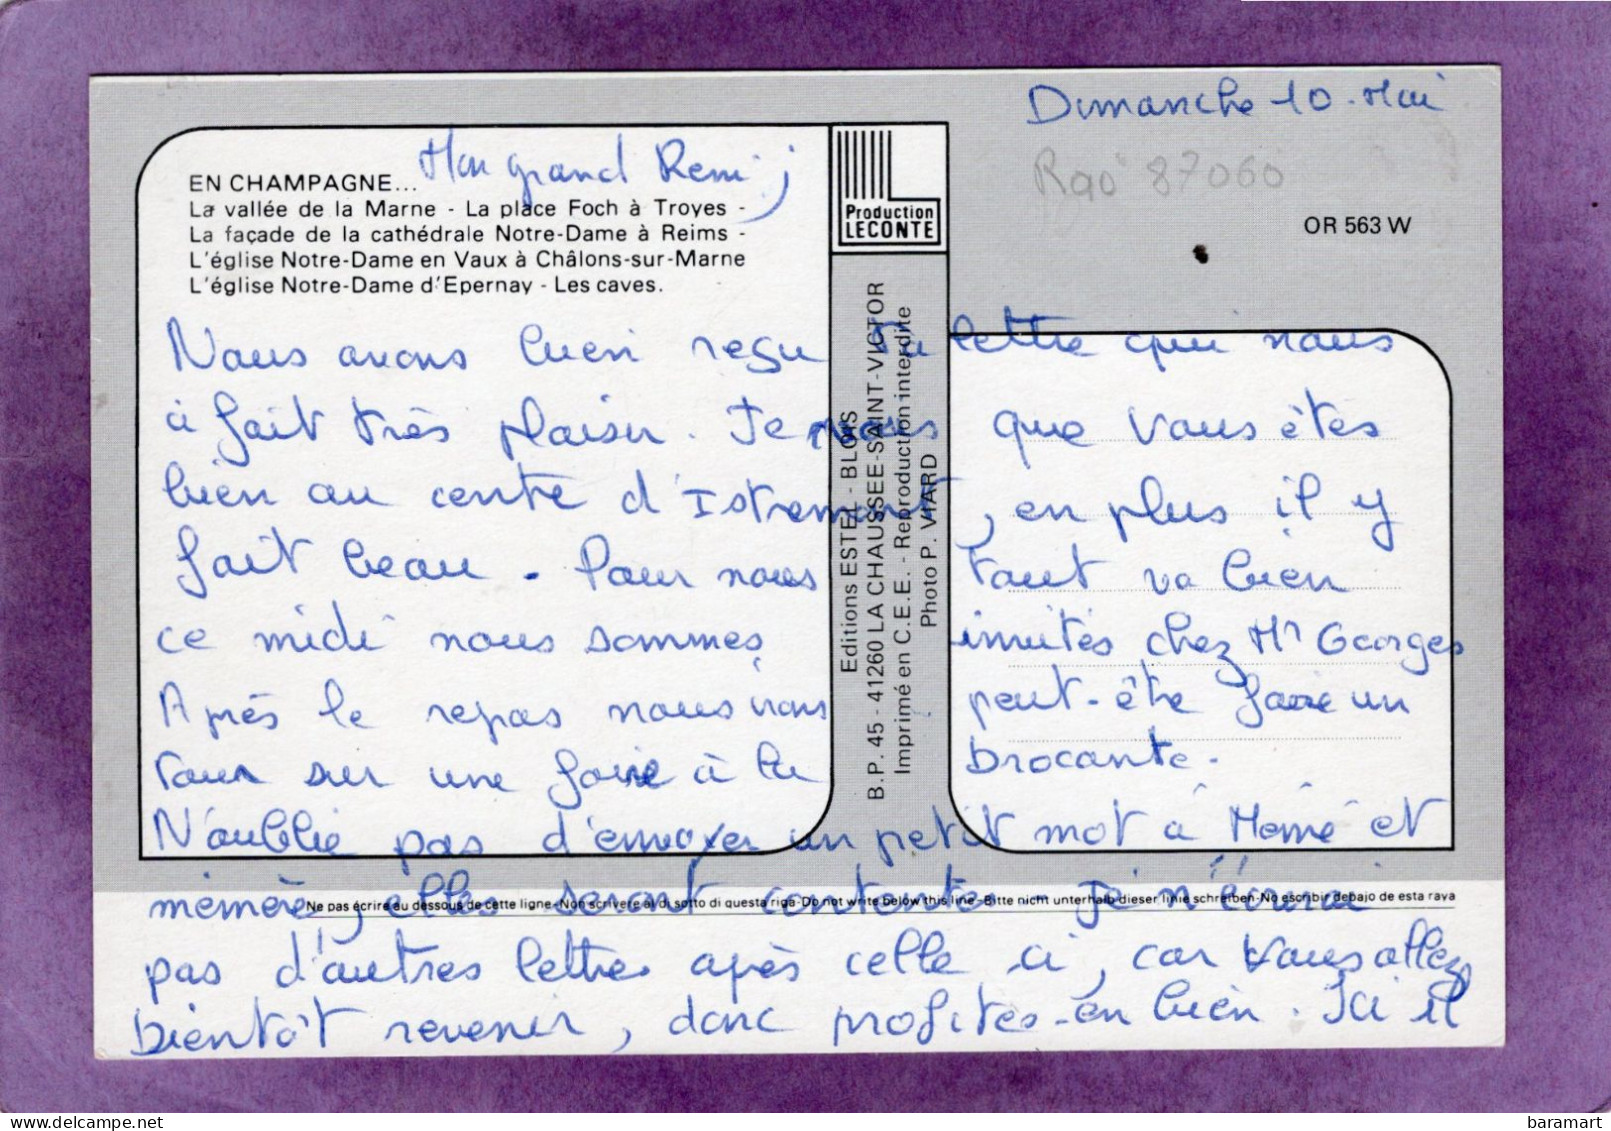 Dimanche 10. Mai
Rqo 87060
OR 563 W
Mon grand Remi ;
EN CHAMPAGNE...
La vallée de la Marne - La place Foch à Troyes -
La façade de la cathédrale Notre-Dame à Reims -
L'église Notre-Dame en Vaux à Châlons-sur-Marne
L'église Notre-Dame d'Epernay - Les caves.
Production
LECONTE
Editions ESTEL - BLOIS
B.P. 45 - 41260 LA CHAUSSEE-SAINT-VICTOR
Imprimé en C.E.E. - Reproduction interdite
Photo P. VIARD
Nous avons bien reçu ta lettre qui nous
a fait très plaisir. Je vois que vous êtes
bien au centre d'Istremont, en plus il y
fait beau. Pour nous tout va bien
ce midi nous sommes invités chez Mr Georges
Après le repas nous irons peut-être faire un
tour sur une foire à la brocante.
N'oublie pas d'envoyer un petit mot à Mémé et
mémère, elles seront contentes je n'écrirai
Ne pas écrire au dessous de cette ligne-Non scrivere al di sotto di questa riga-Do not write below this line-Bitte nicht unterhalb dieser linie schreiben-No escribir debajo de esta raya
pas d'autres lettres après celle ci, car vous allez
bientôt revenir, donc profites-en bien. Ici il
baramart